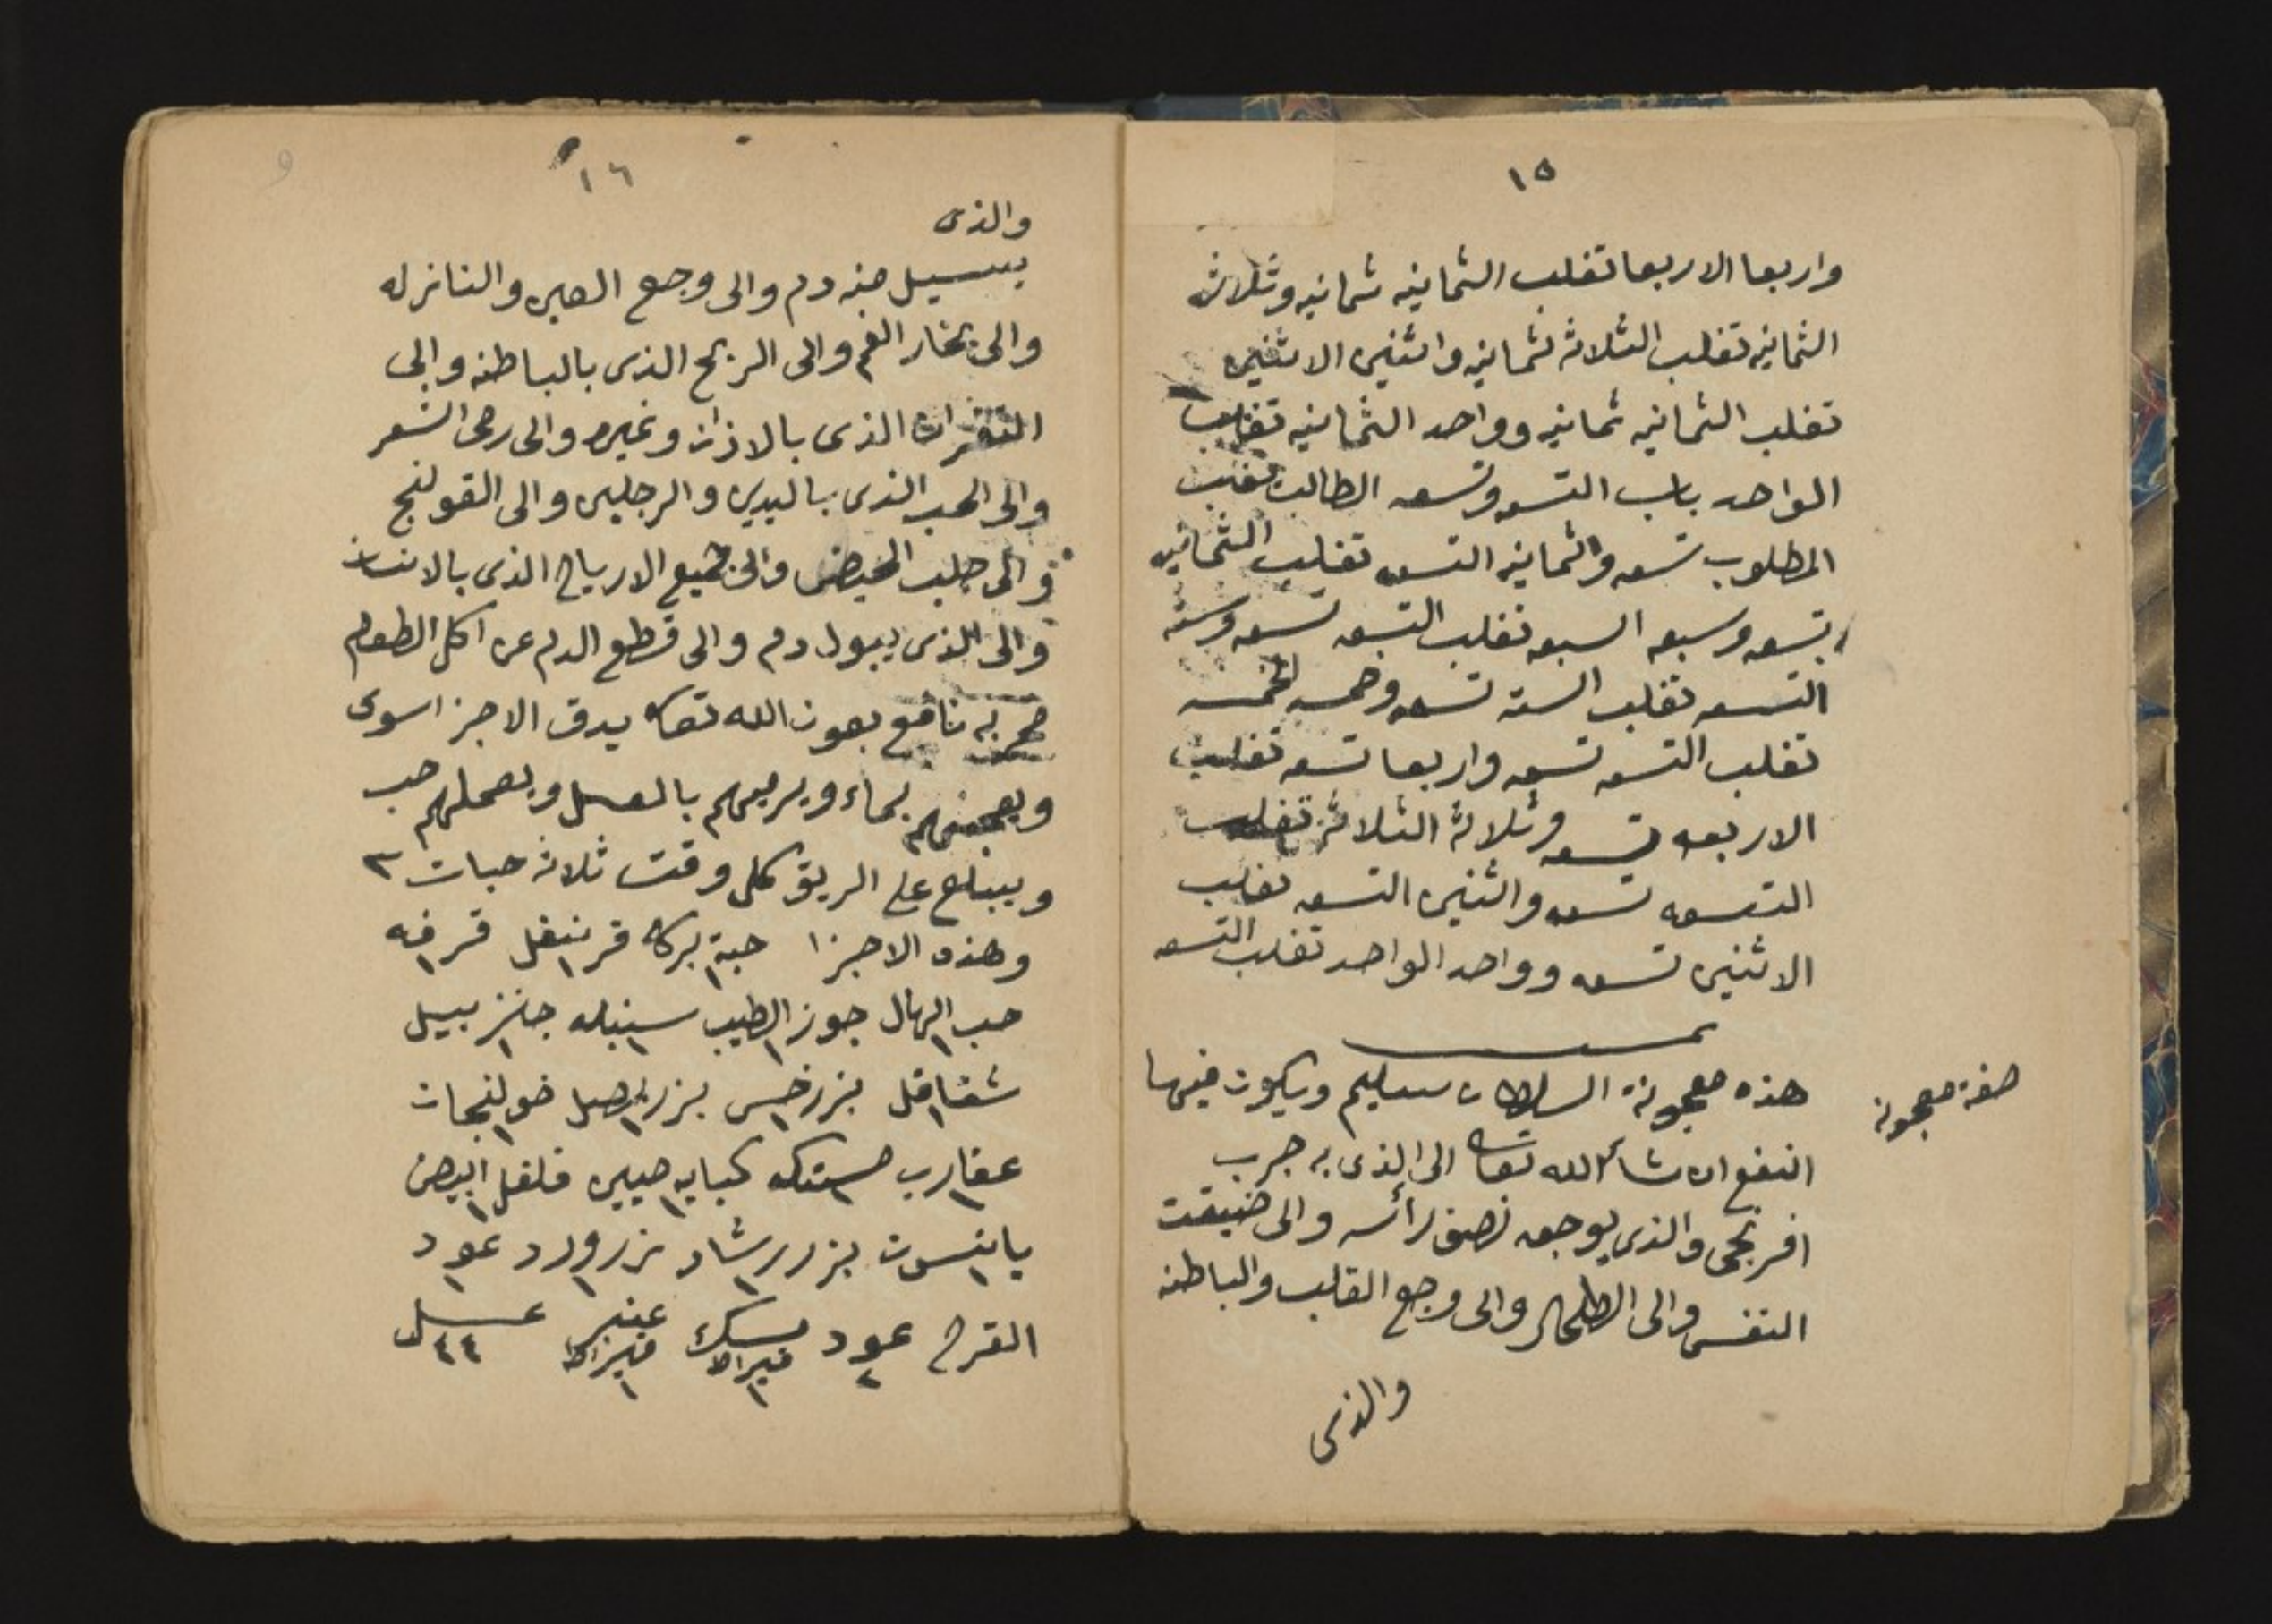 ١٥
واربعا الاربعا تغلب الثمانيه ثمانيه وثلاثه
الثمانيه تغلب الثلاثه ثمانيه واثنين الاثنين
تغلب الثمانيه ثمانيه وواحد الثمانيه تغلب
الواحد باب التسعه وتسعه الطالب تغلب
المطلوب تسعه والثمانيه التسعه تغلب الثمانيه
تسعه وسبعه السبعه تغلب التسعه تسعه وسته
التسعه تغلب السته تسعه وخمسه الخمسه
تغلب التسعه تسعه واربعا تسعه تغلب
الاربعه تسعه وثلاثة الثلاثة تغلب
التسعه تسعه واثنين التسعه تغلب
الاثنين تسعه وواحد الواحد تغلب التسعه
صفة معجونه
هذه معجونة السلطان سليم ويكون فيها
النفع ان شاء الله تعا الى الذى به جرب
افرنجى والذى يوجعه نصف رأسه والى ضيقت
النفس والى الطحال والى وجع القلب والباطنه
والذى
١٦
والذى
يسيل منه دم والى وجع العين والنازله
والى بخار الفم والى الريح الذى بالباطنه والى
الذى بالاذان وغيره والى رمى الشعر
والى الحب الذى باليدين والرجلين والى القولنج
والى جلب الحيض والى جميع الارياح الذى بالانسان
والى الذى يبول دم والى قطع الدم عن اكل الطعام
مجربه نافع بعون الله تعا يدق الاجزا سوى
ويعجنهم بماء ويربيهم بالعسل ويعملهم حب
ويبلع على الريق كل وقت ثلاثه حبات ٣
وهذه الاجزا حبة بركه قرنفل قرفه
حب الهال جوز الطيب سنبله جنزبيل
شقاقل بزر خس بزر بصل خولنجان
عقارب مستكه كبابه صينى فلفل ابيض
يانسون بزر رشاد زر ورد عود
القرح عود ٢ مسك قيراط ١ عنبر قيراط ١ عسل ٤٤